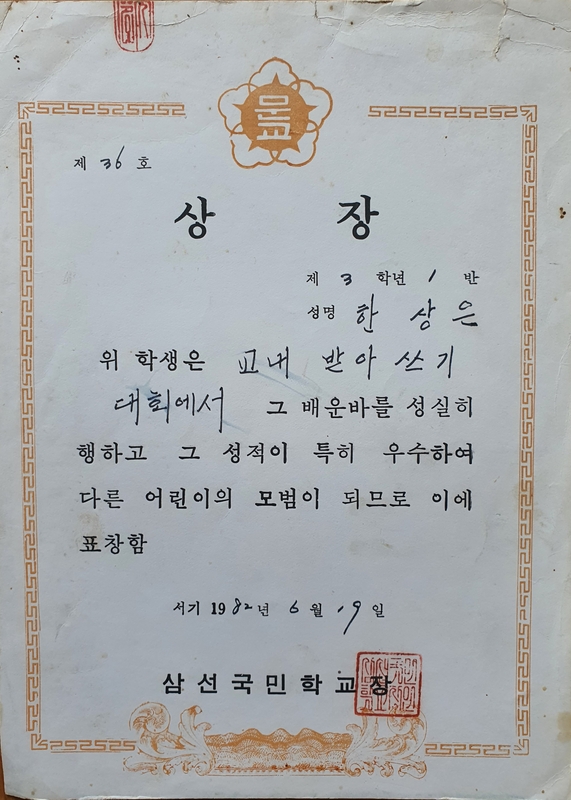 문교
제 36 호
상 장
제 3 학년 1 반
성명 한 상 은
위 학생은 교내 받아 쓰기
대회에서 그 배운바를 성실히
행하고 그 성적이 특히 우수하여
다른 어린이의 모범이 되므로 이에
표창함
서기 1982년 6 월 19 일
삼선국민학교장